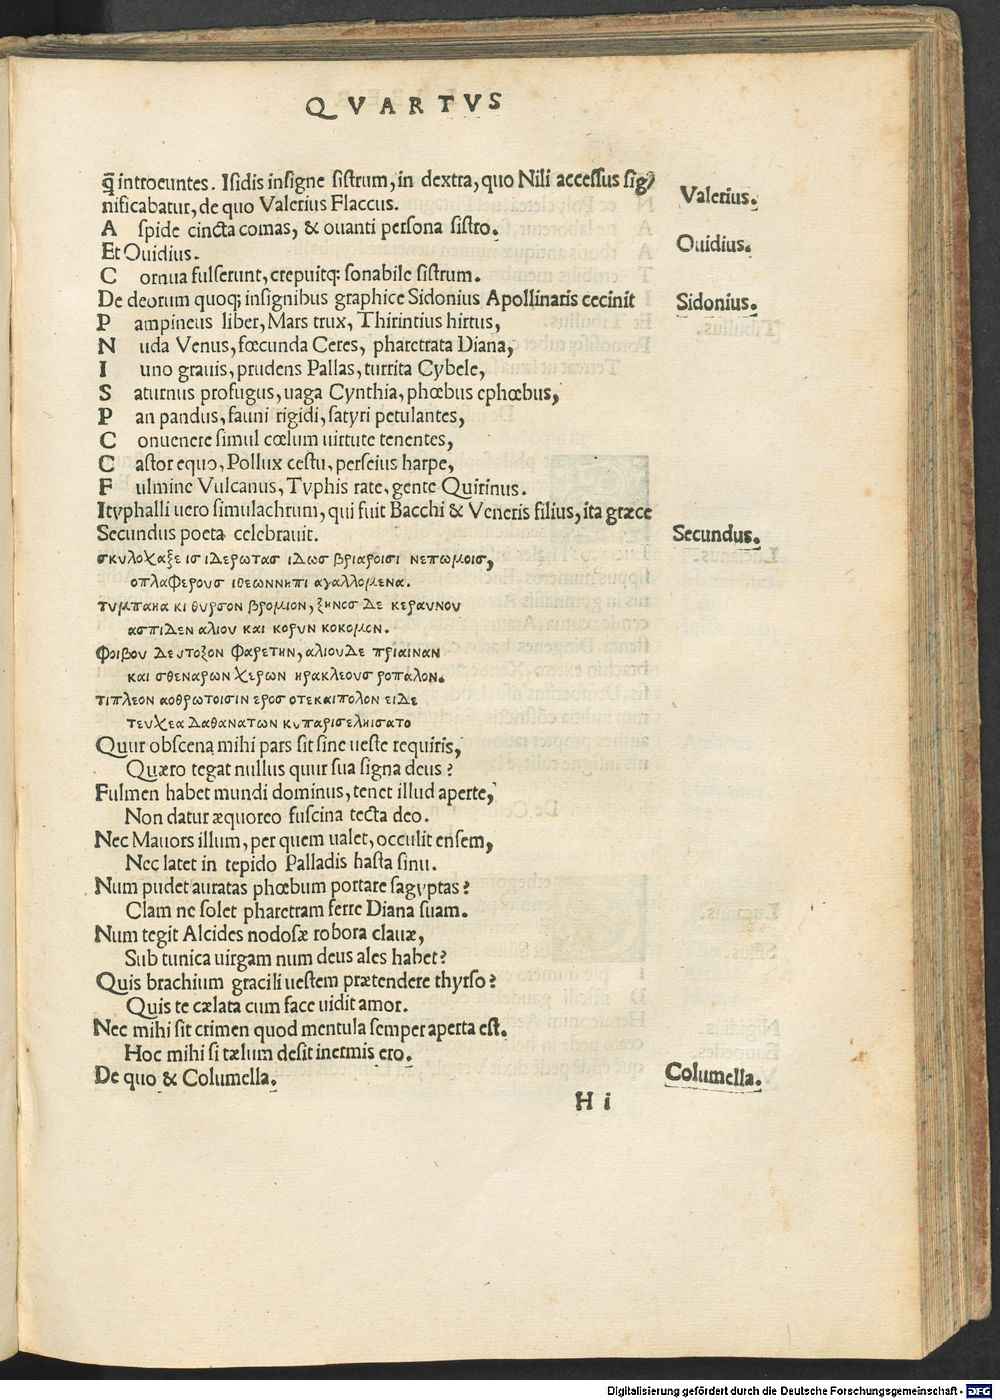 QVARTVS
q̄ introeuntes. Isidis insigne sistrum, in dextra, quo Nili accessus sig/
nificabatur, de quo Valerius Flaccus.
Valerius.
A spide cincta comas, & ouanti persona sistro.
Et Ouidius.
Ouidius.
C ornua fulserunt, crepuitq; sonabile sistrum.
De deorum quoq; insignibus graphice Sidonius Apollinaris cecinit
Sidonius.
P ampineus liber, Mars trux, Thirintius hirtus,
N uda Venus, fœcunda Ceres, pharetrata Diana,
I uno grauis, prudens Pallas, turrita Cybele,
S aturnus profugus, uaga Cynthia, phœbus ephœbus,
P an pandus, fauni rigidi, satyri petulantes,
C onuenere simul cœlum uirtute tenentes,
C astor equo, Pollux cestu, perseius harpe,
F ulmine Vulcanus, Typhis rate, gente Quirinus.
Ityphalli uero simulachrum, qui fuit Bacchi & Veneris filius, ita græce
Secundus poeta celebrauit.
Secundus.
σκυλοχαξε ισ ιδερωτασ ιδωσ βριαροισι νεπωμοισ,
οπλαφερουσ ιθεωννηπι αγαλλομενα.
τυμπανα κι θυρσον βρομιον, ξηνοσ δε κεραυνου
ασπιδεν αλιου και κορυν κοκομεν.
φοιβου δευτοξον φαρετην, αλιουδε πριαιναν
και σθεναρων χερων ηρακλεουσ ροπαλον.
τιπλεον αοθρωτοισιν εροσ οτεκαιπολον ειδε
τευχεα δαθανατων κυπαρισεληισατο
Quur obscena mihi pars sit sine ueste requiris,
Quæro tegat nullus quur sua signa deus?
Fulmen habet mundi dominus, tenet illud aperte,
Non datur æquoreo fuscina tecta deo.
Nec Mauors illum, per quem ualet, occulit ensem,
Nec latet in tepido Palladis hasta sinu.
Num pudet auratas phœbum portare sagyptas?
Clam ne solet pharetram ferre Diana suam.
Num tegit Alcides nodosæ robora clauæ,
Sub tunica uirgam num deus ales habet?
Quis brachium gracili uestem prætendere thyrso?
Quis te cælata cum face uidit amor.
Nec mihi sit crimen quod mentula semper aperta est.
Hoc mihi si tælum desit inermis ero.
De quo & Columella.
Columella.
H i
Digitalisierung gefördert durch die Deutsche Forschungsgemeinschaft - DFG